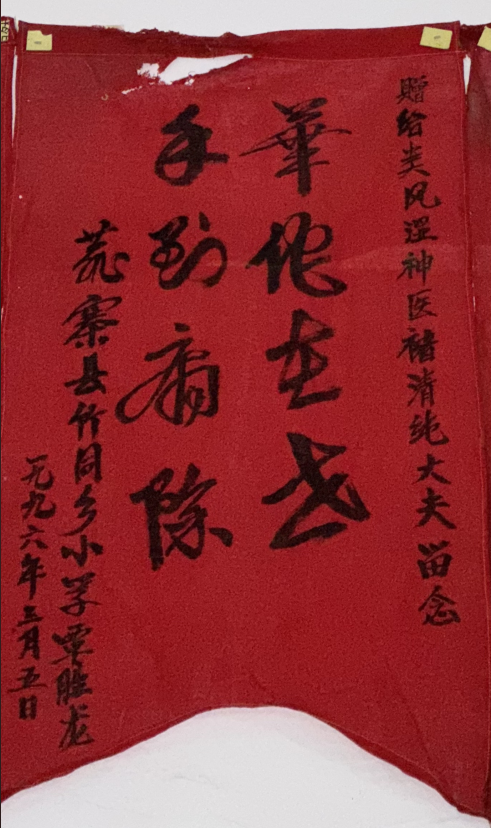 赠给类风湿神医褚清纯大夫留念
華佗在世
手到病除
寨县竹同乡小学覃胜龙
一九九六年三月五日